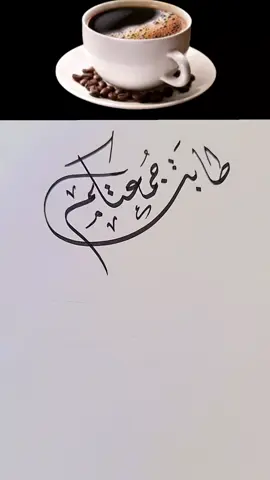 طابَت جُمعتكم